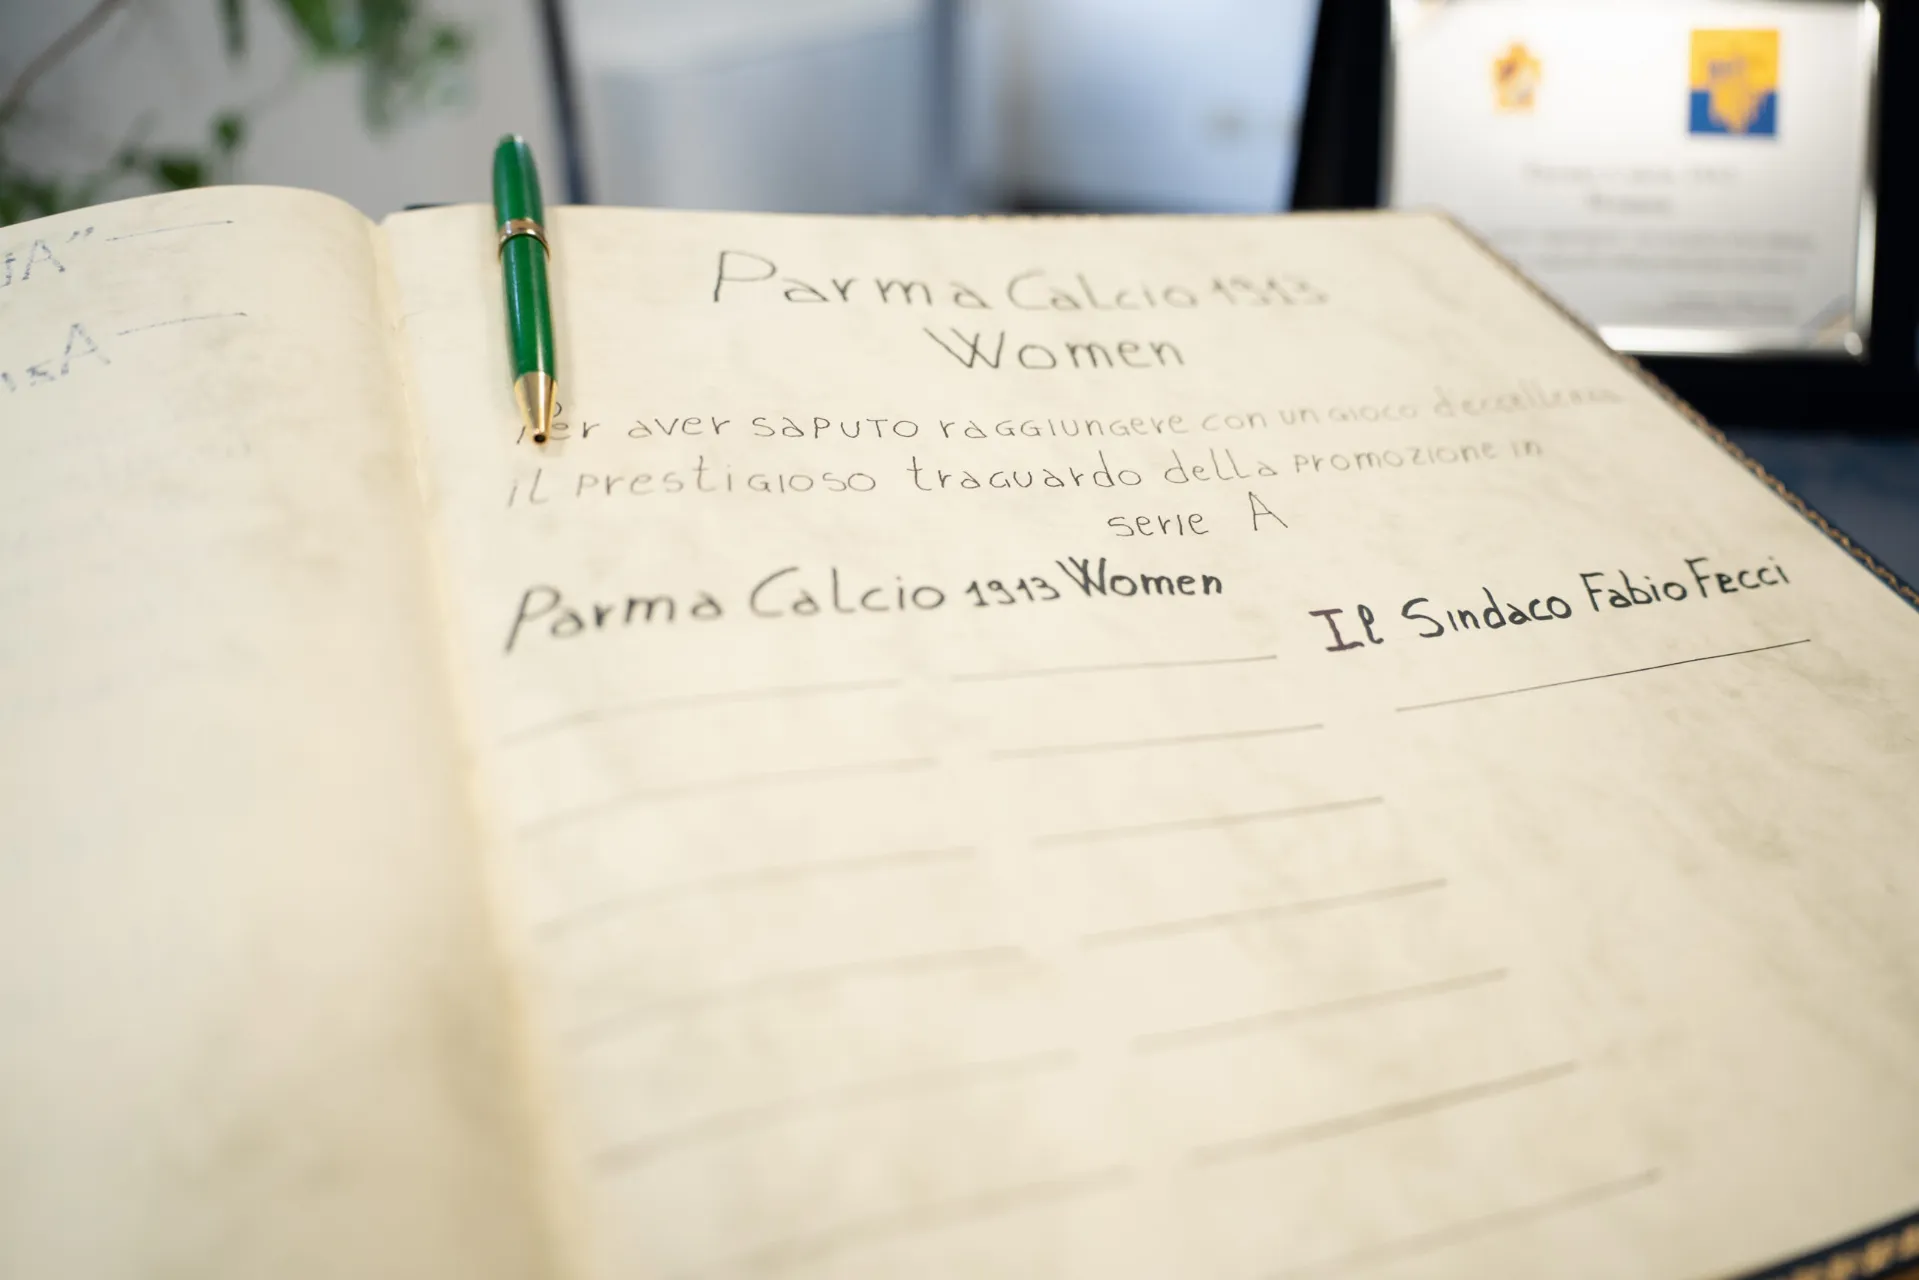 A"
A
Parma Calcio 1913
Women
Per aver saputo raggiungere con un gioco d'eccellenza
il prestigioso traguardo della promozione in
serie A
Parma Calcio 1913 Women
Il Sindaco Fabio Fecci